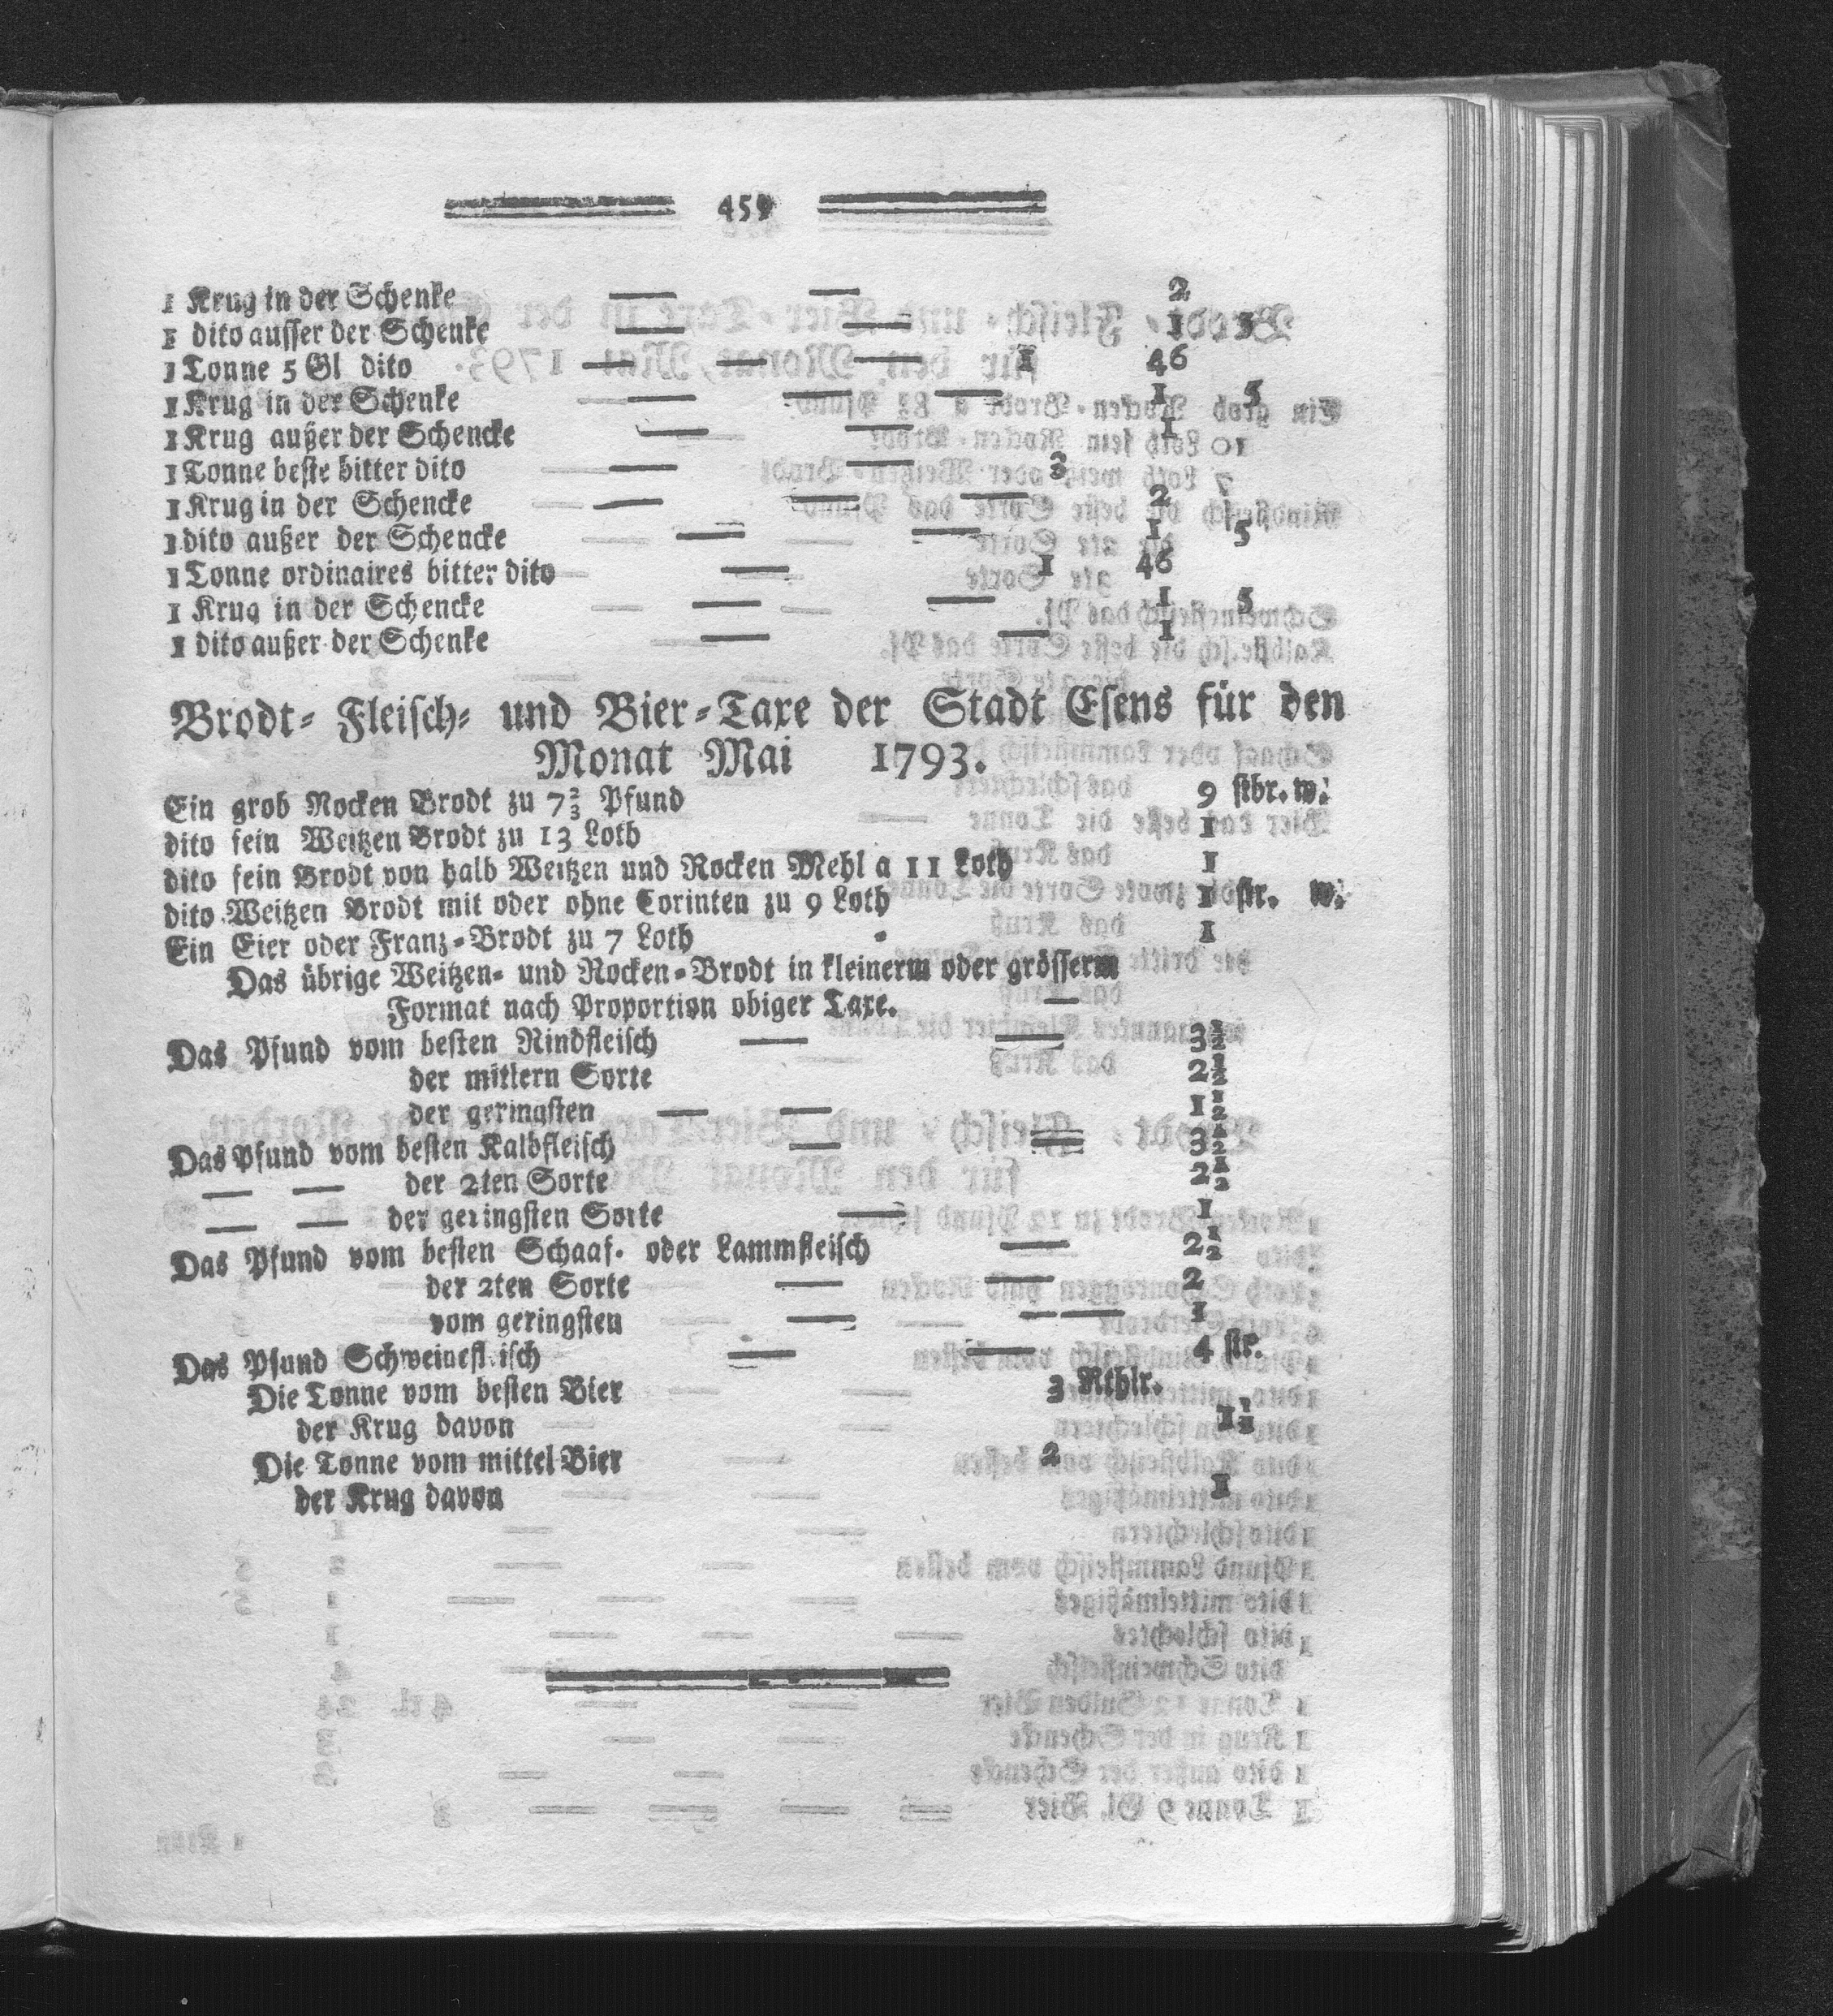 459
1 Krug in der Schenke — — 2
1 dito ausser der Schenke — — 1 5
1 Tonne 5 Gl dito — — — 1 46
1 Krug in der Schenke — — — 1 5
1 Krug außer der Schencke — — 1
1 Tonne beste bitter dito — — 3
1 Krug in der Schencke — — — 2
1 dito außer der Schencke — — 1 5
1 Tonne ordinaires bitter dito — 1 46
1 Krug in der Schencke — — 1 5
1 dito außer der Schenke — — 1
Brodt- Fleisch- und Bier-Taxe der Stadt Esens für den
Monat Mai 1793.
Ein grob Rocken Brodt zu 7⅔ Pfund 9 stbr. w.
dito fein Weitzen Brodt zu 13 Loth 1
dito fein Brodt von halb Weitzen und Rocken Mehl a 11 Loth 1
dito Weitzen Brodt mit oder ohne Corinten zu 9 Loth 1 str. w.
Ein Eier oder Franz-Brodt zu 7 Loth 1
Das übrige Weitzen- und Rocken-Brodt in kleinerm oder grösserm
Format nach Proportion obiger Taxe. —
Das Pfund vom besten Rindfleisch — — 3½
der mitlern Sorte 2½
der geringsten — — 1½
Das Pfund vom besten Kalbfleisch — — 3½
— — der 2ten Sorte 2½
— — der geringsten Sorte — 1
Das Pfund vom besten Schaaf- oder Lammfleisch — 2½
der 2ten Sorte — — 2
vom geringsten — — — 1
Das Pfund Schweinefleisch — — 4 str.
Die Tonne vom besten Bier 3 Rthlr.
der Krug davon 1½
Die Tonne vom mittel Bier 2
der Krug davon 1